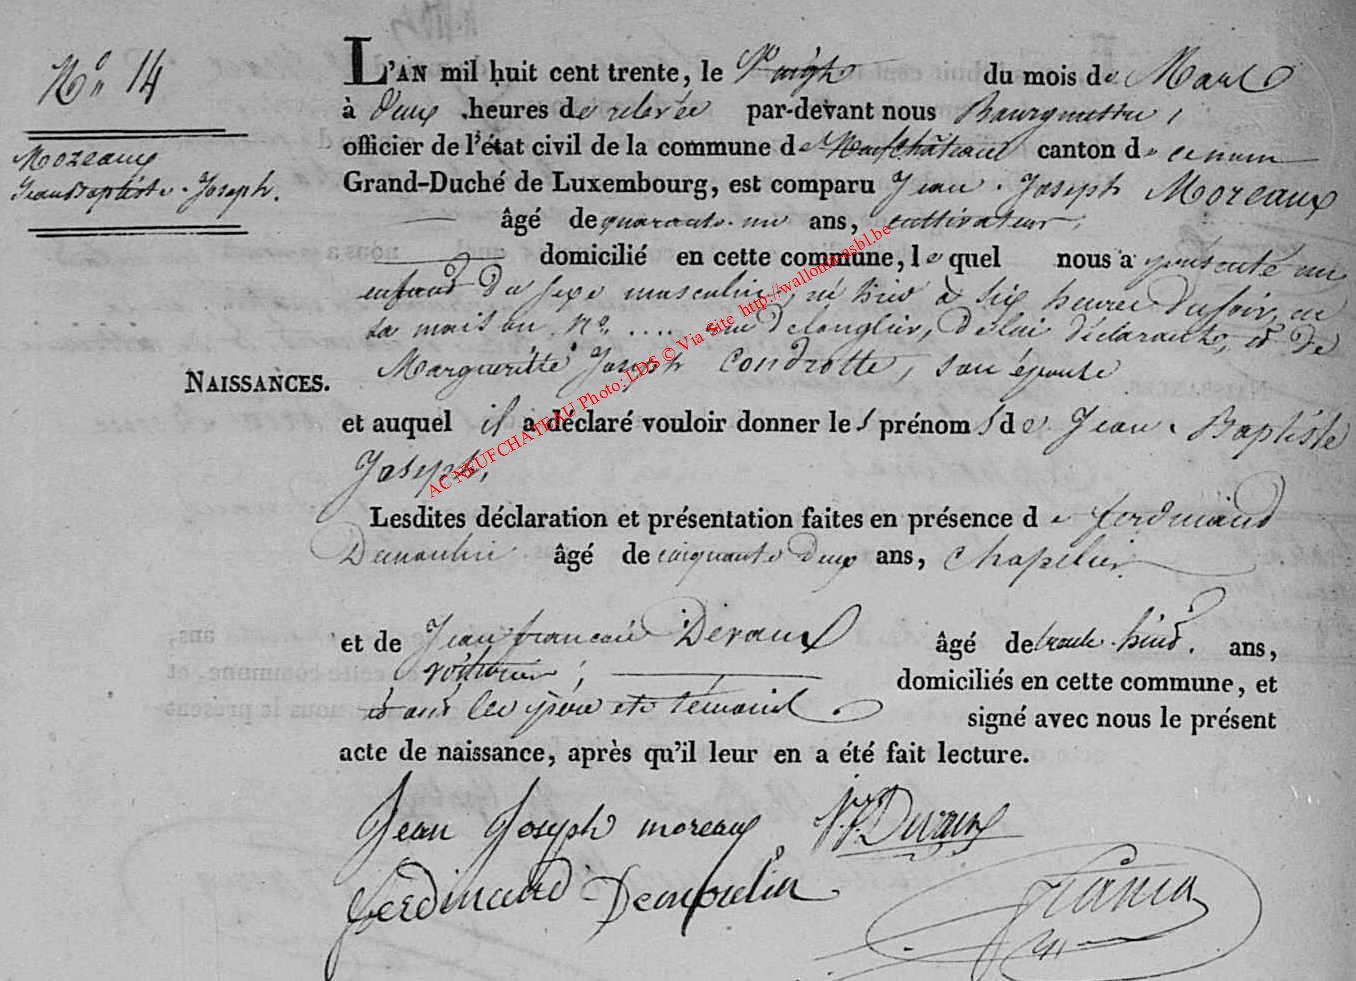 N.º 14
Moreaux
Jean Baptiste Joseph.
NAISSANCES.
L'AN mil huit cent trente, le Vingt du mois de Mars
à deux heures de relevée par-devant nous Bourgmestre,
officier de l'état civil de la commune de Neufchâteau canton de ce nom
Grand-Duché de Luxembourg, est comparu Jean Joseph Moreaux
âgé de quarante un ans, cultivateur,
domicilié en cette commune, lequel nous a présenté un
enfant du sexe masculin, né hier à six heures du soir, en
sa maison, n.º .... rue de longlier, de lui déclarant, et de
Marguerite Joseph Condrotte, son épouse
et auquel il a déclaré vouloir donner les prénoms de Jean Baptiste
Joseph,
Lesdites déclaration et présentation faites en présence de ferdinand
Demoulin âgé de cinquante deux ans, chapelier
et de Jean francois Devaux âgé de trente huit ans,
voiturier, domiciliés en cette commune, et
et ont les père et témoins signé avec nous le présent
acte de naissance, après qu'il leur en a été fait lecture.
Jean Joseph moreaux Devaux
ferdinand Demoulin
AC NEUFCHATEAU Photo: LDS © Via Site http://wallonica.asbl.be